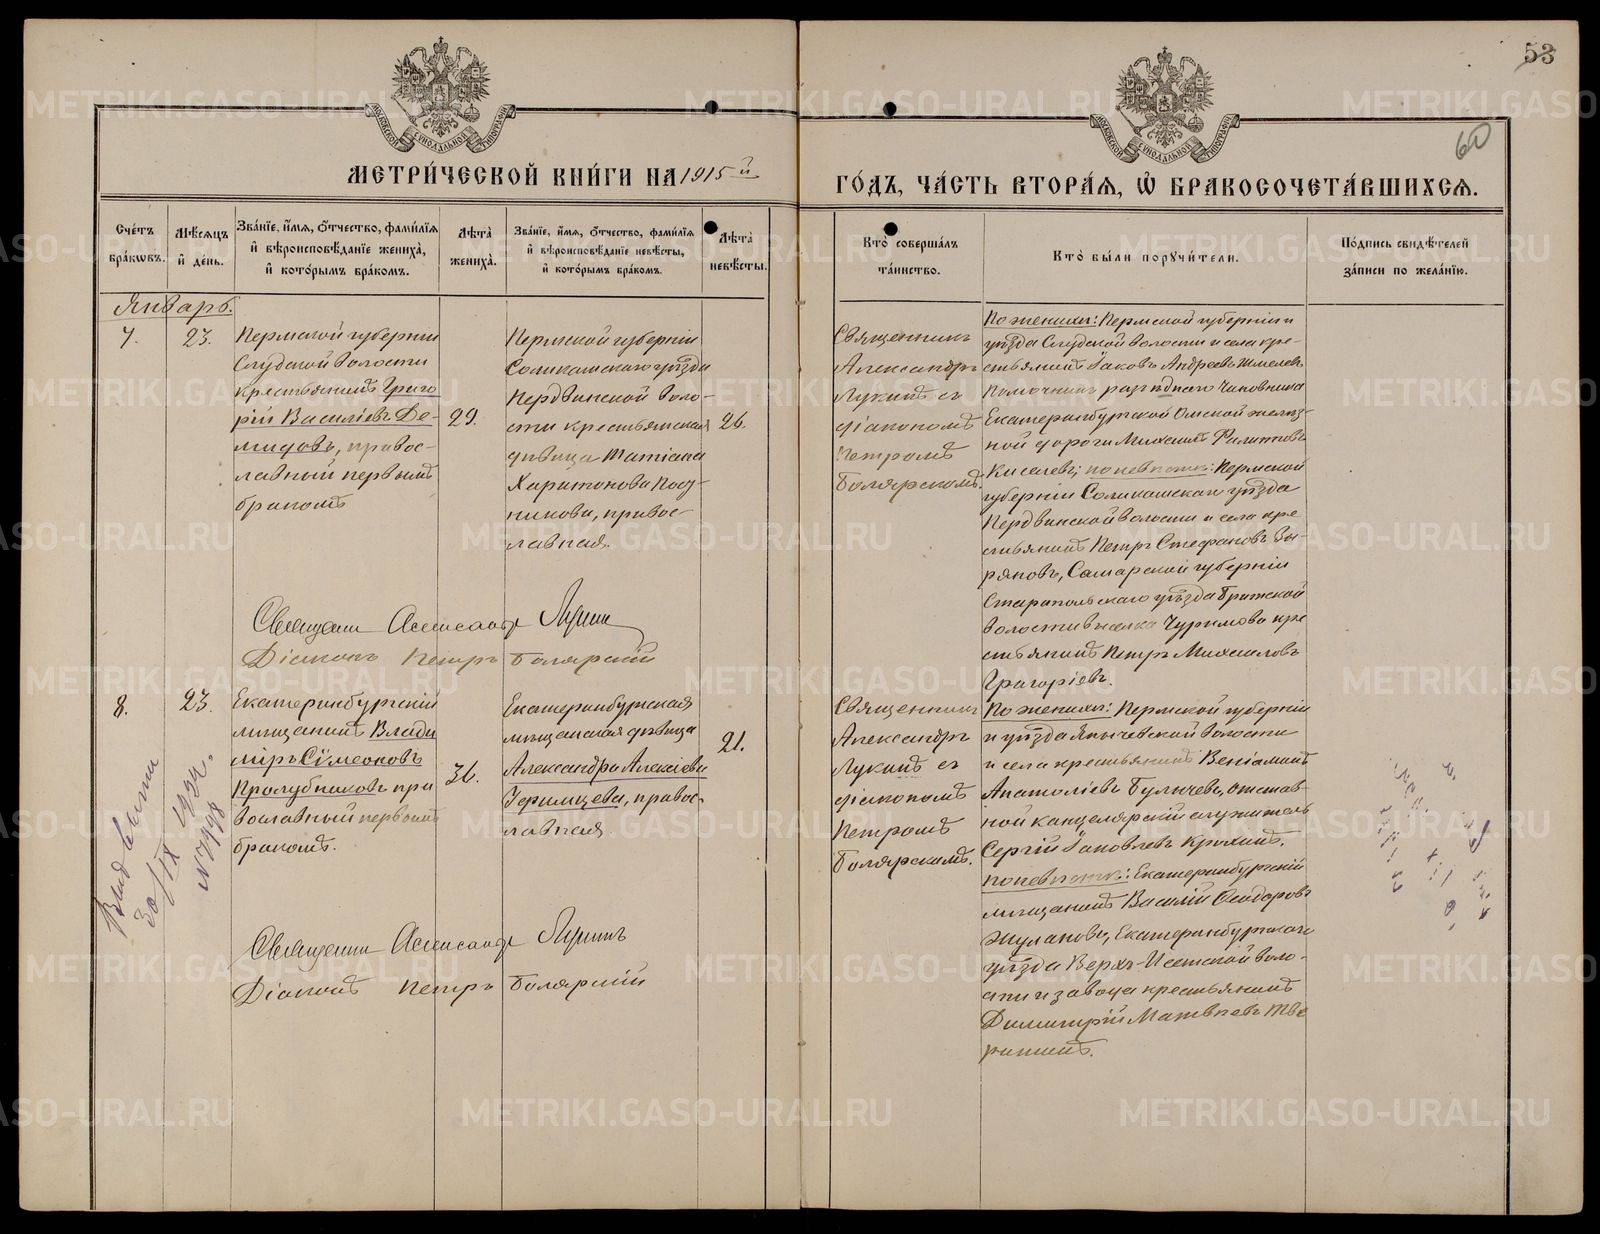 53
60
МЕТРИ́ЧЕСКОЙ КНИ́ГИ НА 1915й
ГО́ДЪ, ЧА́СТЬ ВТОРА́Я, Ѡ БРАКОСОЧЕТА́ВШИХСЯ.
Сче́тъ бра́кѡвъ.
Мѣ́сяцъ и҆ де́нь.
Зва́нїе, и҆́мя, ѻ҆́тчество, фами́лїя
и҆ вѣроисповѣ́данїе жениха̀,
и҆ кото́рымъ бра́комъ.
Лѣта̀ жениха̀.
Зва́нїе, и҆́мя, ѻ҆́тчество, фами́лїя
и҆ вѣроисповѣ́данїе невѣ́сты,
и҆ кото́рымъ бра́комъ.
Лѣта̀ невѣ́сты.
Кто̀ соверша́лъ
та́инство.
Кто̀ бы́ли поручи́тели.
По́дпись свидѣ́телей
за́писи по жела́нїю.
Январь.
7.
23.
Пермской губернии
Слудской волости
крестьянинъ Григо
рій Василіевъ Де-
мидовъ, правос-
лавный первымъ
бракомъ
29.
Пермской губерніи
Соликамскаго уѣзда
Пердвинской воло-
сти крестьянская
дѣвица Татіана
Харитонова
правос-
лавная.
26.
Священникъ
Александръ
Лукинъ съ
діакономъ
Петромъ
Боляр­скомъ.
По женихѣ: Пермской губерніи и
уѣзда Слудской волости и села кре-
стьянинъ Іаковъ Андреевъ Шмелевъ
Помочникъ разъѣднаго Чиновника
Екатеринбургской Омской желѣз-
ной дороги Михаилъ Филиповъ
Киселевъ; по невѣстѣ: Пермской
губерніи Соликамскаго уѣзда
Пердвинской волости и села кре
стьянинъ Петръ Стефановъ Зы-
ряновъ, Самарской губерніи
уѣзда
волости выселка Чуримова кре
стьянинъ Петръ Михаиловъ
Григоріевъ.
Священникъ Александръ Лукинъ
Діаконъ Петръ Болярскій
8.
23.
Екатеринбургскій
мѣщанинъ Влади
міръ Сѵмеоновъ
Пролубниковъ пра
вославный первымъ
бракомъ.
36.
Екатеринбургская
мѣщанская дѣвица
Александра Алексіева
Уфимцева, правос-
лавная.
21.
Священникъ
Александръ
Лукинъ съ
діакономъ
Петромъ
Болярскомъ.
По женихѣ: Пермской губерніи
и уѣзда Янычевской волости
и села крестьянинъ Веніаминъ
Анатоліевъ Булычевъ, отстав-
ной канцелярскій служитель
Сергій Іаковлевъ Крохинъ.
по невѣстѣ: Екатеринбургскій
мѣщанинъ Василій Ѳеодоровъ
Жулановъ, Екатеринбургскаго
уѣзда Верхъ-Исетской воло-
сти и завода крестьянинъ
Димитрій Матвѣевъ Тве
ритинъ.
30/IX 1922.
N 7798
Священникъ Александръ Лукинъ
Діаконъ Петръ Болярскій
METRIKI.GASO-URAL.RU